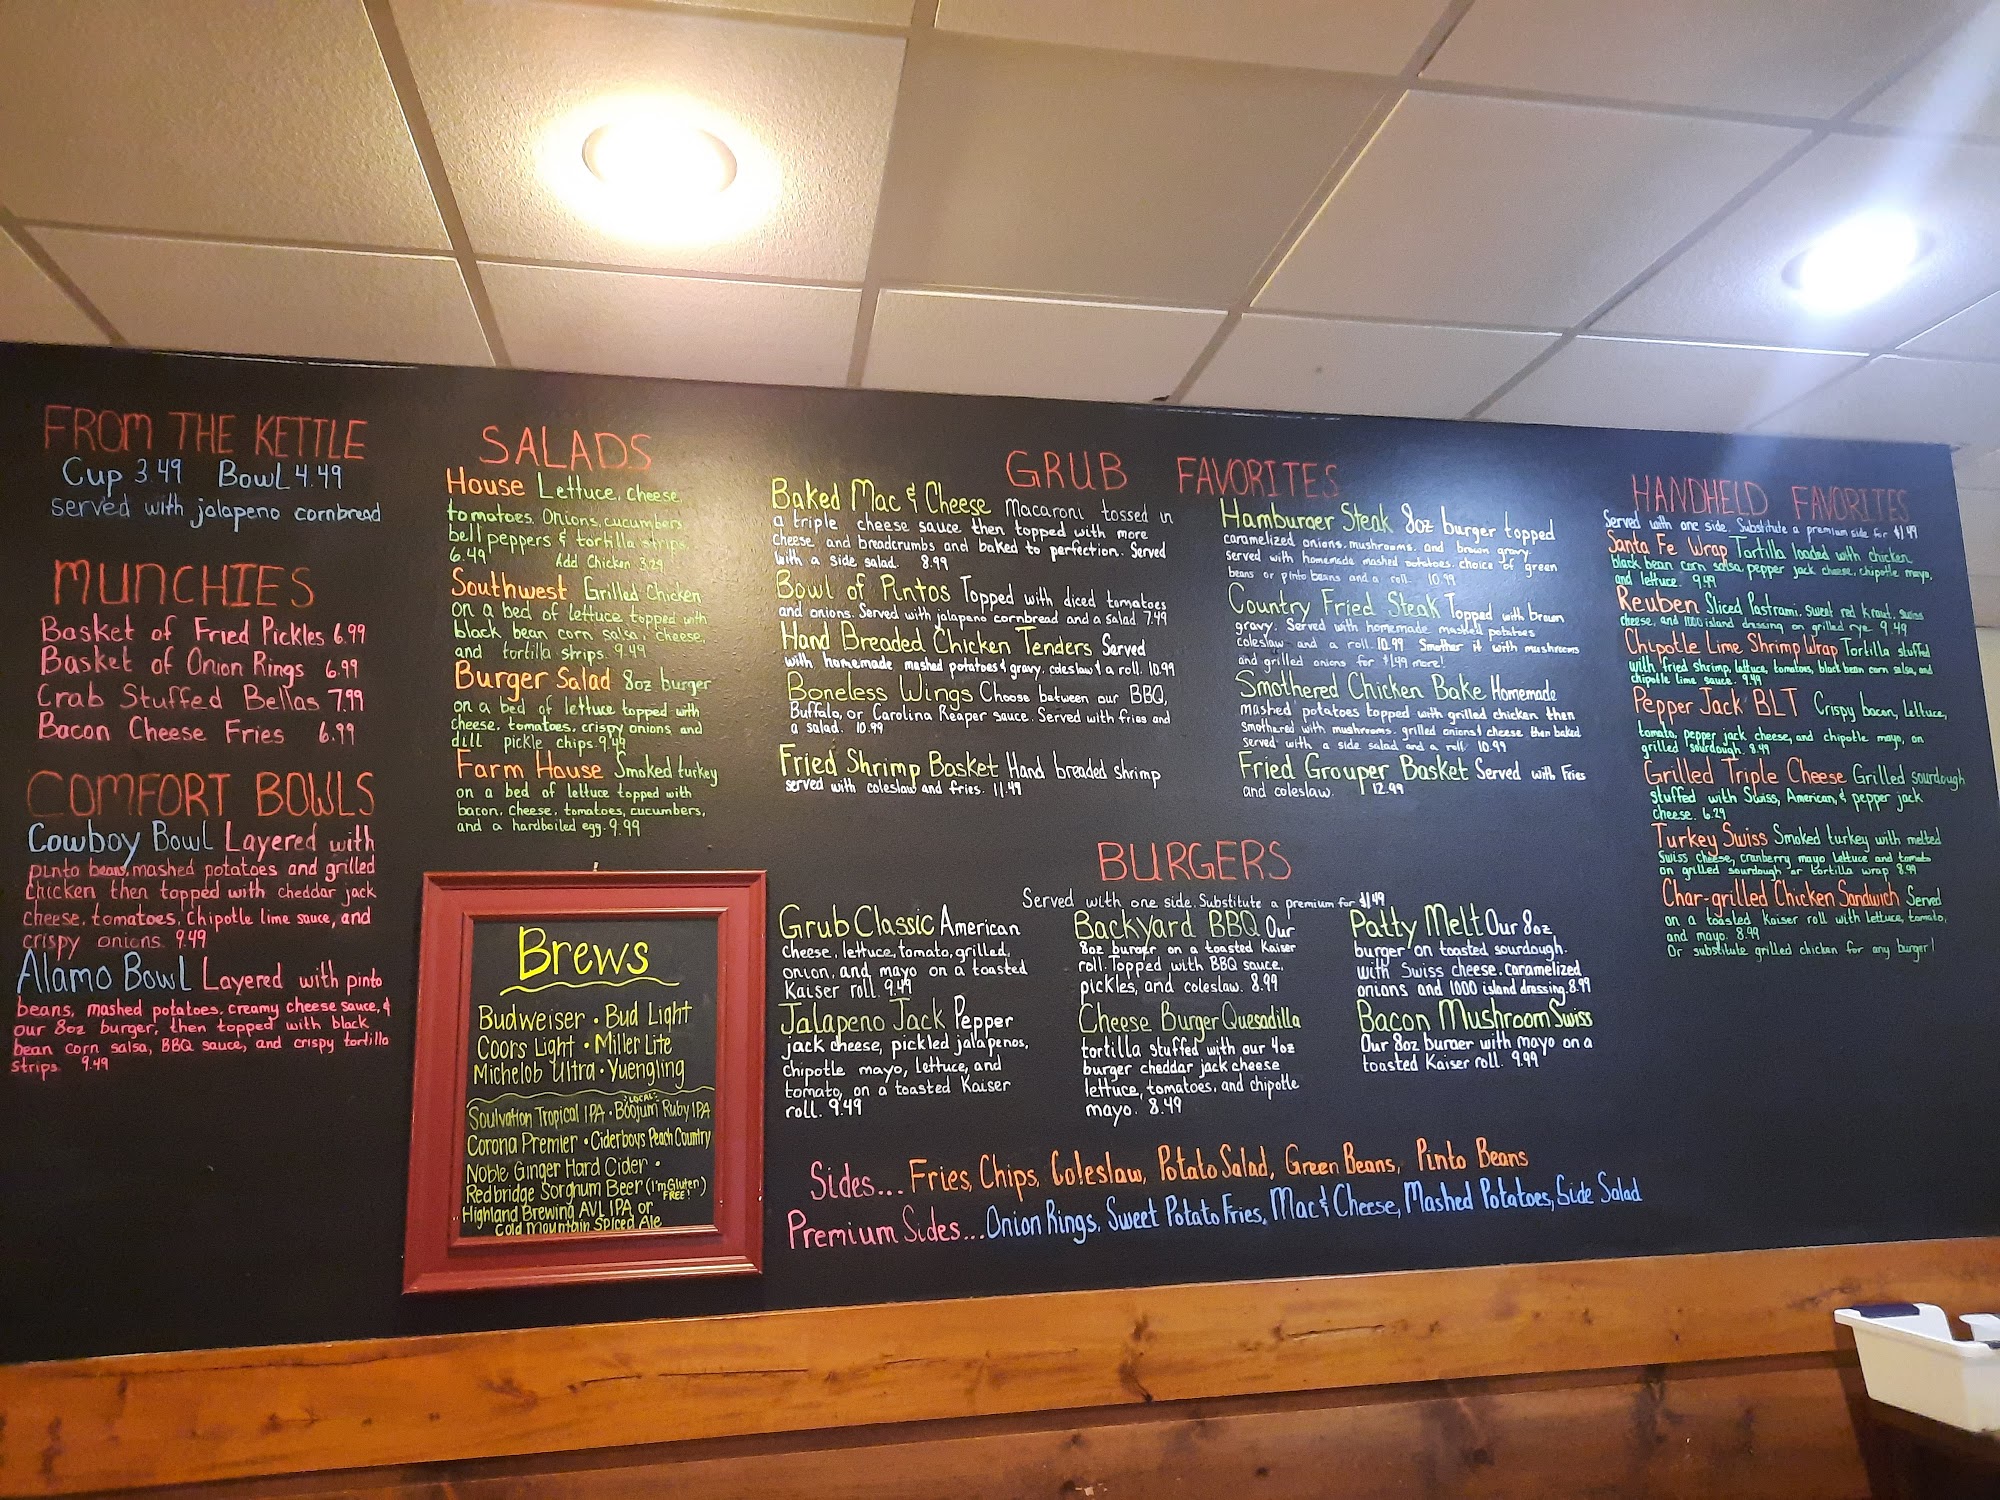 FROM THE KETTLE
Cup 3.49 Bowl 4.49
served with jalapeno cornbread
MUNCHIES
Basket of Fried Pickles 6.99
Basket of Onion Rings 6.99
Crab Stuffed Bellas 7.99
Bacon Cheese Fries 6.99
COMFORT BOWLS
Cowboy Bowl Layered with
pinto beans, mashed potatoes and grilled
chicken then topped with cheddar jack
cheese, tomatoes, chipotle lime sauce, and
crispy onions. 9.49
Alamo Bowl Layered with pinto
beans, mashed potatoes, creamy cheese sauce, &
our 8oz burger, then topped with black
bean corn salsa, BBQ sauce, and crispy tortilla
strips. 9.49
SALADS
House Lettuce, cheese,
tomatoes, onions, cucumbers
bell peppers & tortilla strips.
6.49 Add Chicken 3.29
Southwest Grilled Chicken
on a bed of lettuce topped with
black bean corn salsa, cheese,
and tortilla strips. 9.49
Burger Salad 8oz burger
on a bed of lettuce topped with
cheese, tomatoes, crispy onions and
dill pickle chips. 9.49
Farm House Smoked turkey
on a bed of lettuce topped with
bacon, cheese, tomatoes, cucumbers,
and a hardboiled egg. 9.99
Brews
Budweiser • Bud Light
Coors Light • Miller Lite
Michelob Ultra • Yuengling
LOCAL:
Soulvation Tropical IPA • Boojum Ruby IPA
Corona Premier • Ciderboys Peach Country
Noble Ginger Hard Cider •
Redbridge Sorghum Beer (I'm Gluten FREE!)
Highland Brewing AVL IPA or
Cold Mountain Spiced Ale
GRUB FAVORITES
Baked Mac & Cheese Macaroni tossed in
a triple cheese sauce then topped with more
cheese and breadcrumbs and baked to perfection. Served
with a side salad. 8.99
Bowl of Pintos Topped with diced tomatoes
and onions. Served with jalapeno cornbread and a salad 7.49
Hand Breaded Chicken Tenders Served
with homemade mashed potatoes & gravy, coleslaw & a roll. 10.99
Boneless Wings Choose between our BBQ,
Buffalo, or Carolina Reaper sauce. Served with fries and
a salad. 10.99
Fried Shrimp Basket Hand breaded shrimp
served with coleslaw and fries. 11.49
Hamburger Steak 8oz burger topped
caramelized onions, mushrooms, and brown gravy.
served with homemade mashed potatoes, choice of green
beans or pinto beans and a roll. 10.99
Country Fried Steak Topped with brown
gravy. Served with homemade mashed potatoes
coleslaw and a roll 10.99 Smother it with mushrooms
and grilled onions for $1.49 more!
Smothered Chicken Bake Homemade
mashed potatoes topped with grilled chicken then
smothered with mushrooms, grilled onions & cheese then baked
Served with a side salad and a roll 10.99
Fried Grouper Basket Served with Fries
and coleslaw. 12.99
BURGERS
Served with one side. Substitute a premium for $1.49
Grub Classic American
Cheese, lettuce, tomato, grilled
onion, and mayo on a toasted
Kaiser roll. 9.49
Jalapeno Jack Pepper
jack cheese, pickled jalapenos,
chipotle mayo, lettuce, and
tomato, on a toasted Kaiser
roll. 9.49
Backyard BBQ Our
8oz burger on a toasted Kaiser
roll. Topped with BBQ sauce,
pickles, and coleslaw. 8.99
Cheese Burger Quesadilla
tortilla stuffed with our 4oz
burger cheddar jack cheese
lettuce, tomatoes, and chipotle
mayo. 8.49
Patty Melt Our 8oz
burger on toasted sourdough.
with Swiss cheese, caramelized
onions and 1000 island dressing. 8.99
Bacon Mushroom Swiss
Our 8oz burger with mayo on a
toasted Kaiser roll. 9.99
Sides... Fries, Chips, Coleslaw, Potato Salad, Green Beans, Pinto Beans
Premium Sides... Onion Rings, Sweet Potato Fries, Mac & Cheese, Mashed Potatoes, Side Salad
HANDHELD FAVORITES
Served with one side. Substitute a premium side for $1.49
Santa Fe Wrap Tortilla loaded with chicken,
black bean corn salsa, pepper jack cheese, chipotle mayo,
and lettuce. 9.49
Reuben Sliced Pastrami, sweet red kraut, swiss
cheese, and 1000 island dressing on grilled rye 9.49
Chipotle Lime Shrimp Wrap Tortilla stuffed
with fried shrimp, lettuce, tomatoes, black bean corn salsa, and
chipotle lime sauce. 9.49
Pepper Jack BLT Crispy bacon, lettuce,
tomato, pepper jack cheese, and chipotle mayo, on
grilled sourdough. 8.49
Grilled Triple Cheese Grilled sourdough
stuffed with Swiss, American, & pepper jack
cheese. 6.29
Turkey Swiss Smoked turkey with melted
Swiss cheese, cranberry mayo lettuce and tomato
on grilled sourdough or tortilla wrap 8.99
Char-grilled Chicken Sandwich Served
on a toasted Kaiser roll with lettuce, tomato,
and mayo. 8.99
Or substitute grilled chicken for any burger!